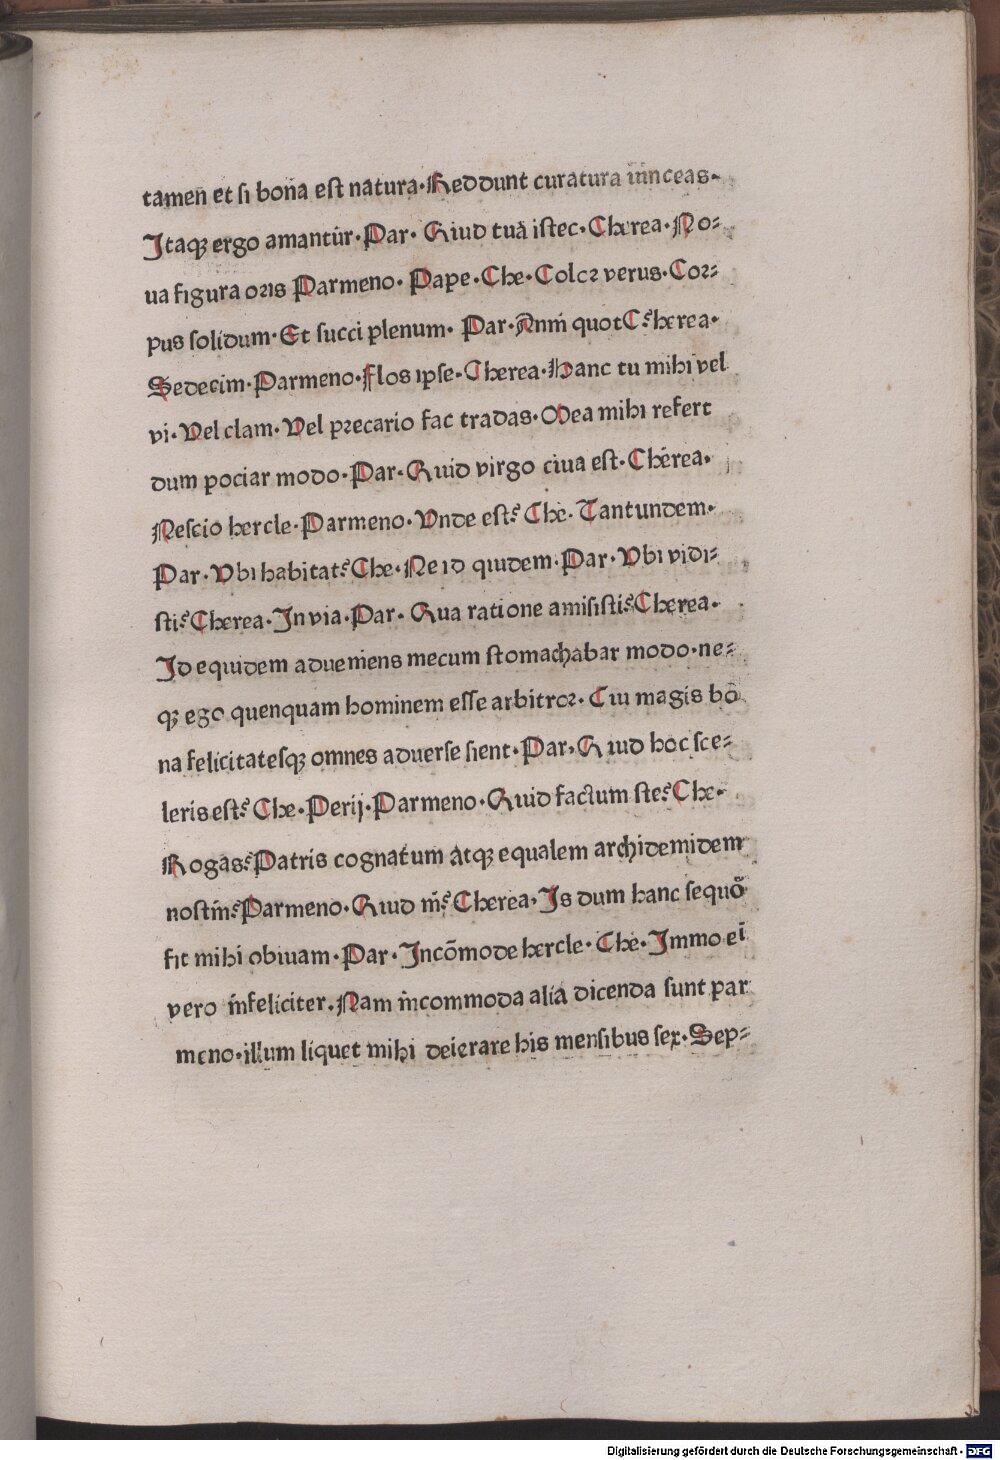 tamen et si bona est natura·Reddunt curatura iũnceas·
Itaqꝫ ergo amantur·Par· Quid tuã istec·Cherea·No⸗
ua figura oris Parmeno· Pape·Che·Color verus·Cor⸗
pus solidum·Et succi plenum· Par·Ann̄i quot?Cherea·
Sedecim·Parmeno·Flos ipse·Cherea·Hanc tu mihi vel
vi·Vel clam·Vel precario fac tradas·Mea mihi refert
dum pociar modo·Par·Quid virgo ciua est·Cherea·
Nescio hercle·Parmeno·Vnde est?Che·Tantundem·
Par·Vbi habitat?Che·Ne id quidem·Par·Vbi vidi⸗
stis?Cherea·In via·Par· Qua ratione amisisti?Cherea·
Id equidem adueniens mecum stomachabar modo·ne⸗
qꝫ ego quenquam hominem esse arbitror· Ciu magis bo
na felicitatesqꝫ omnes aduerse sient·Par·Quid hoc sce⸗
leris est?Che·Perij·Parmeno·Quid factum ste?Che·
Rogas?Patris cognatum atqꝫ equalem archidemidem
nostin?Parmeno·Quid ni?Cherea·Is dum hanc sequõ
fit mihi obuiam·Par·Incõmode hercle·Che·Immo eī
vero infeliciter·Nam incommoda alia dicenda sunt par
meno·illum liquet mihi deierare his mensibus sex·Sep⸗
Digitalisierung gefördert durch die Deutsche Forschungsgemeinschaft - DFG